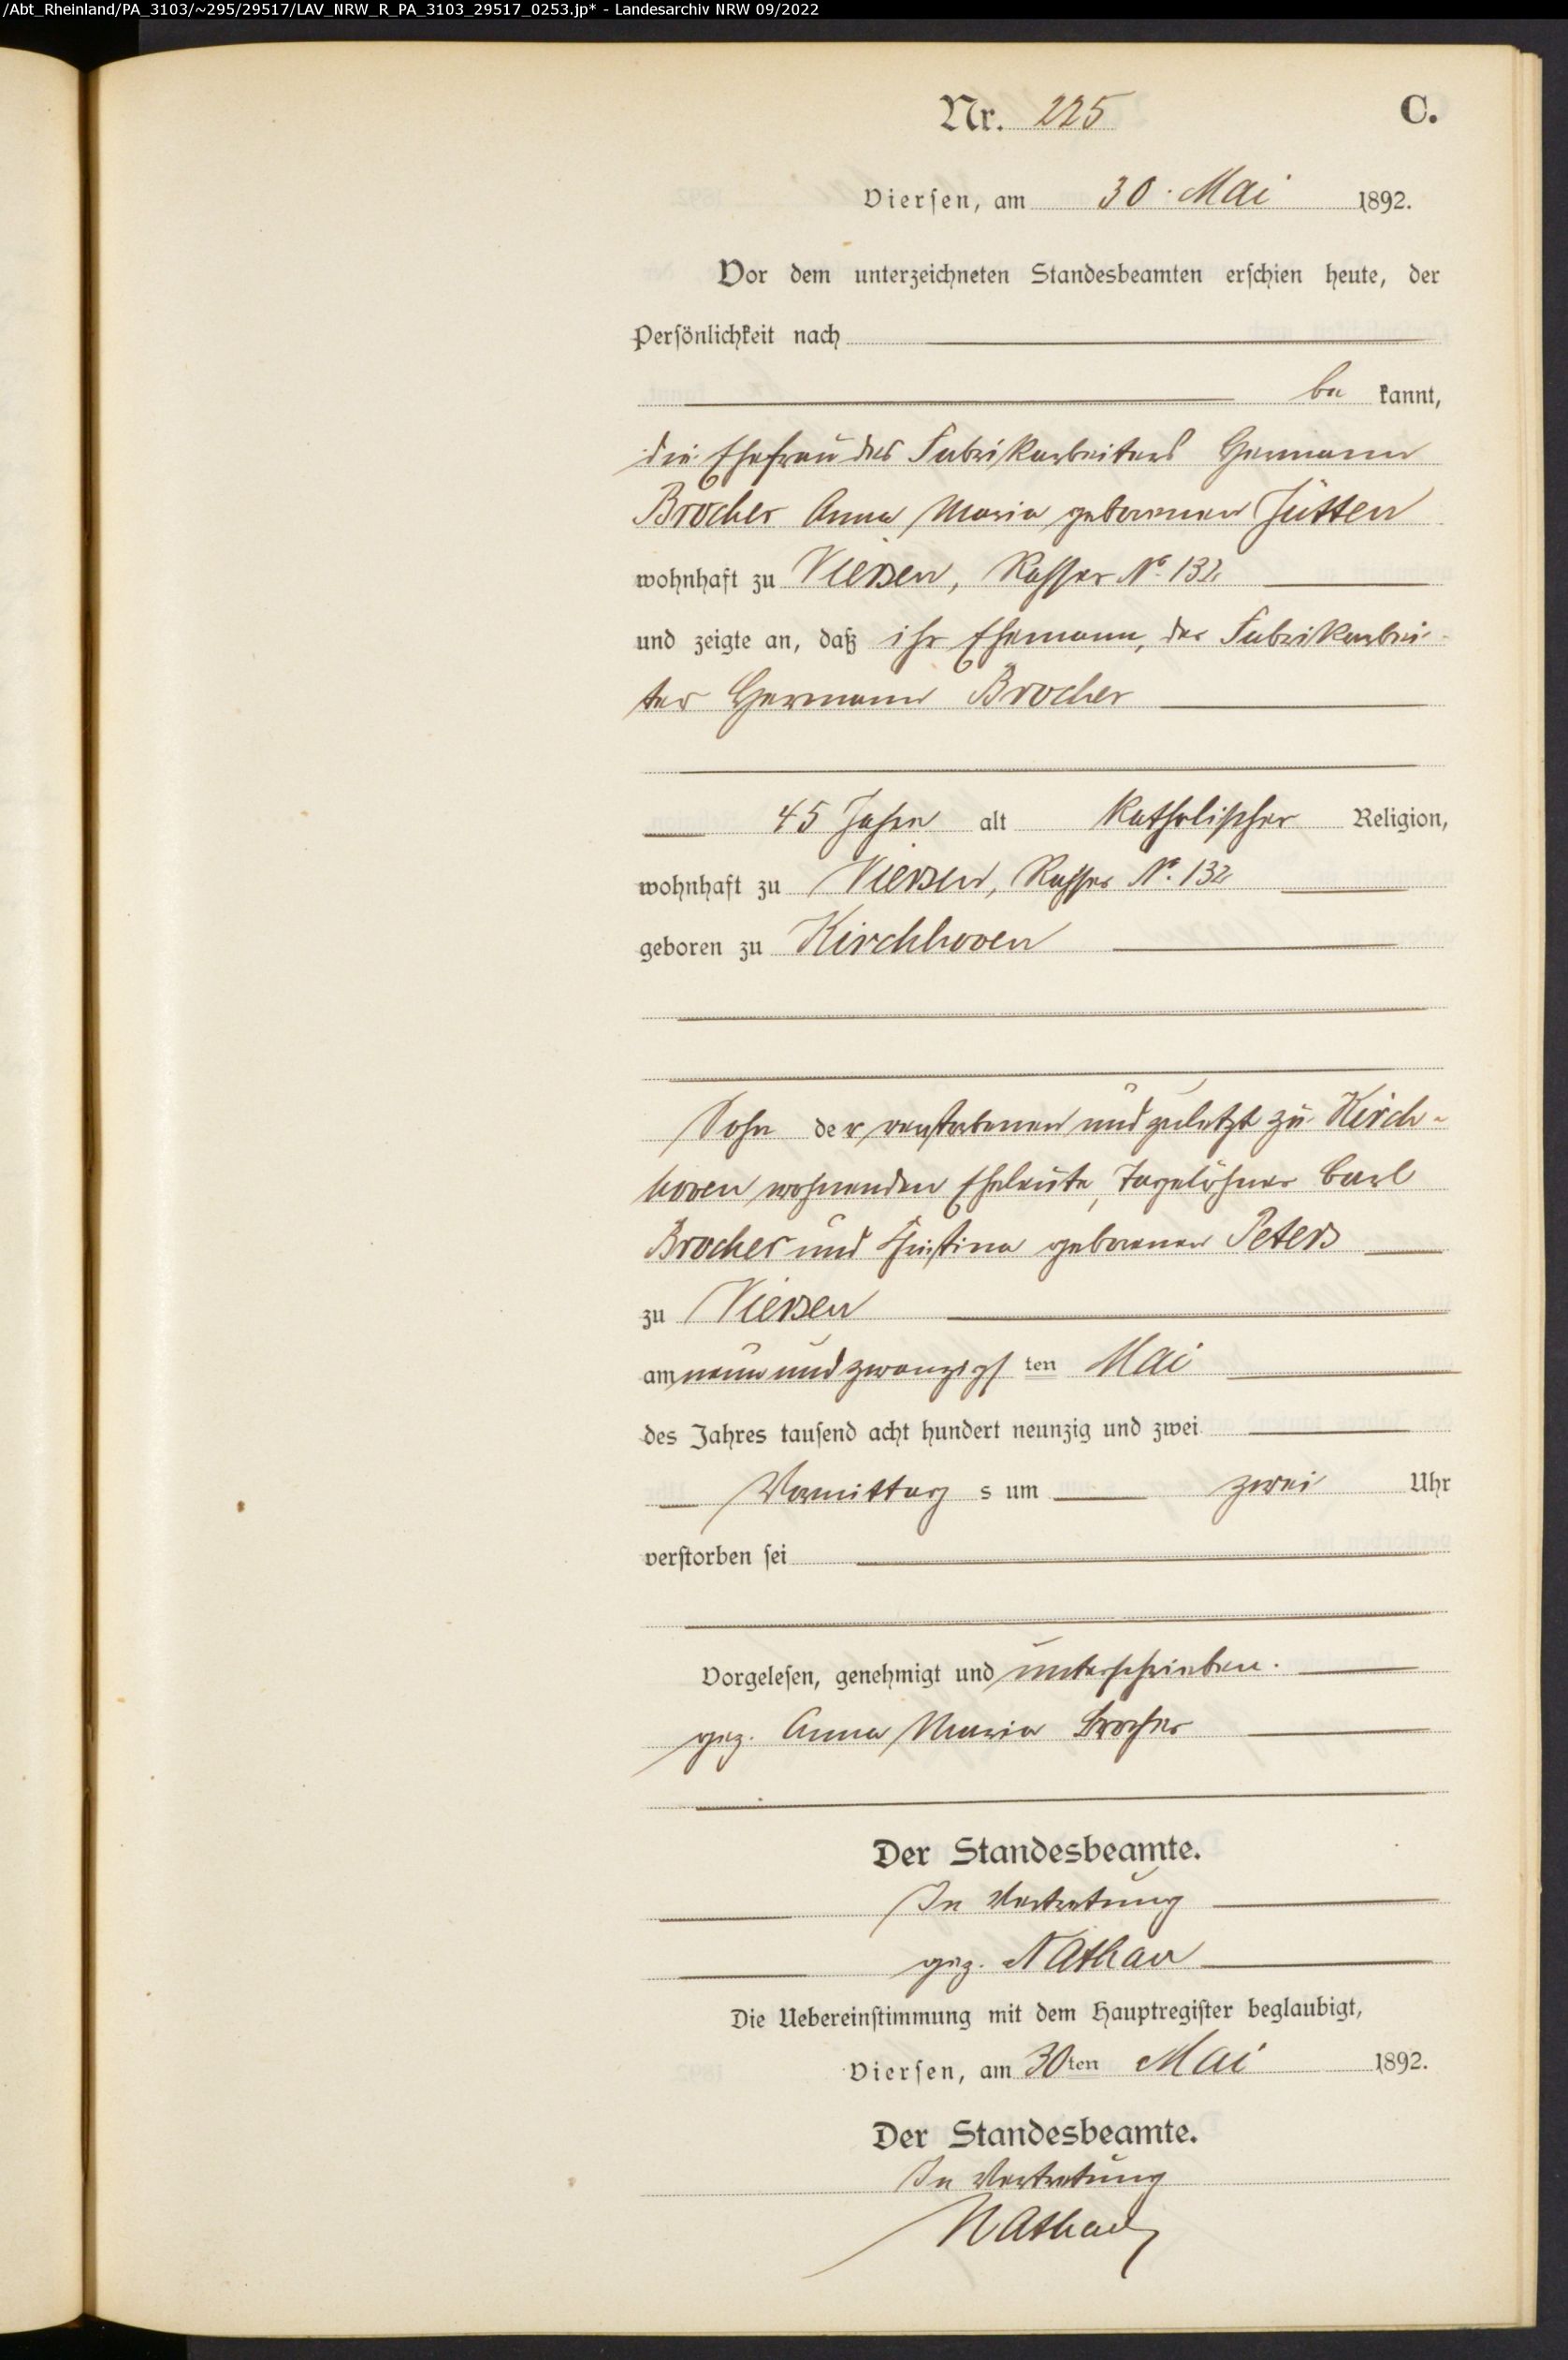 /Abt_Rheinland/PA_3103/~295/29517/LAV_NRW_R_PA_3103_29517_0253.jp* - Landesarchiv NRW 09/2022
Nr. 225 C.
Viersen, am 30. Mai 1892.
Vor dem unterzeichneten Standesbeamten erschien heute, der
Persönlichkeit nach
be kannt,
die Ehefrau des Fabrikarbeiters Hermann
Brocher Anna Maria geborenen Jütten
wohnhaft zu Viersen, Rasser No. 132
und zeigte an, daß ihr Ehemann, der Fabrikarbei-
ter Hermann Brocher
45 Jahre alt katholischer Religion,
wohnhaft zu Viersen, Rasser No. 132
geboren zu Kirchhoven
Sohn der verstorbenen und zuletzt zu Kirch-
hoven wohnenden Eheleute, Tagelöhner Carl
Brocher und Christina geborenen Peters
zu Viersen
am neun und zwanzigsten Mai
des Jahres tausend acht hundert neunzig und zwei
Vormittags um zwei Uhr
verstorben sei
Vorgelesen, genehmigt und unterschrieben.
gez. Anna Maria Brocher
Der Standesbeamte.
In Vertretung
gez. Nathan
Die Uebereinstimmung mit dem Hauptregister beglaubigt,
Viersen, am 30ten Mai 1892.
Der Standesbeamte.
In Vertretung
Nathan